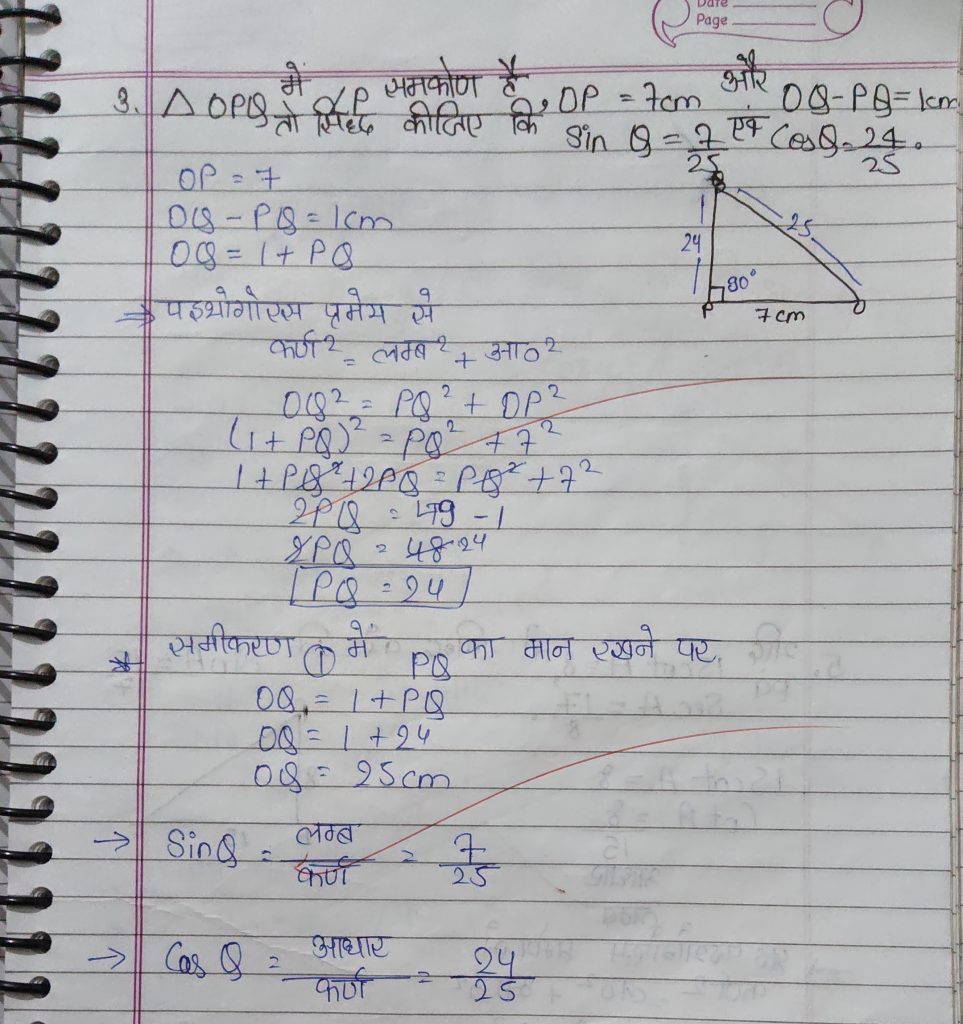 Date
Page
3. △ OPQ में ∠P समकोण है, OP = 7cm और OQ - PQ = 1cm
तो सिध्द कीजिए कि Sin Q = 7/25 एवं CosQ = 24/25.
OP = 7
OQ - PQ = 1cm
OQ = 1 + PQ
Q
24
25
90°
P
7cm
O
⇒ पइथोगोरस प्रमेय से
कर्ण² = लम्ब² + आ०²
OQ² = PQ² + OP²
(1 + PQ)² = PQ² + 7²
1 + PQ² + 2PQ = PQ² + 7²
2PQ = 49 - 1
2PQ = 48 24
PQ = 24
समीकरण ① में PQ का मान रखने पर
OQ = 1 + PQ
OQ = 1 + 24
OQ = 25cm
→ SinQ = लम्ब/कर्ण = 7/25
→ Cos Q = आधार/कर्ण = 24/25